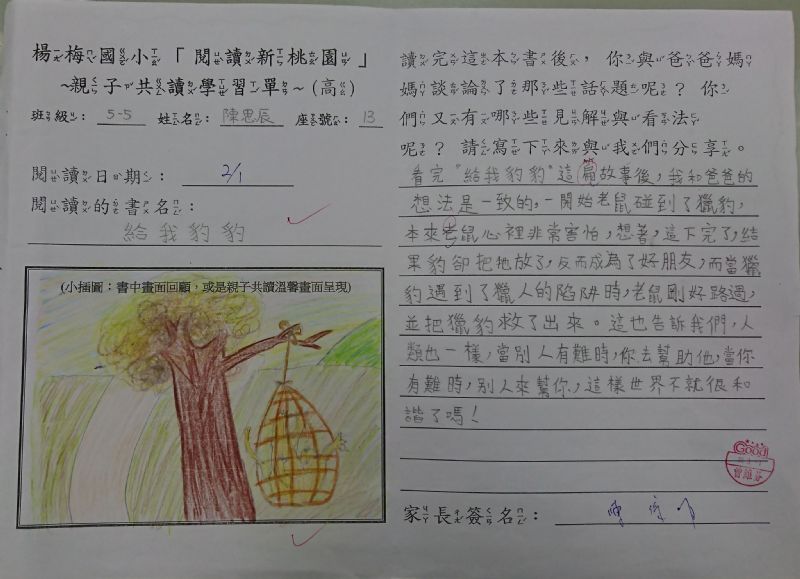 楊梅國小「閱讀新桃園」
~親子共讀學習單~(高)
班級： 5-5 姓名： 陳思辰 座號： 13
閱讀日期： 2/1
閱讀的書名：
給我豹豹
(小插圖：書中畫面回顧，或是親子共讀溫馨畫面呈現)
讀完這本書後，你與爸爸媽
媽談論了那些話題呢？你
們又有哪些見解與看法
呢？請寫下來與我們分享。
看完"給我豹豹"這篇故事後，我和爸爸的
想法是一致的，一開始老鼠碰到了獵豹，
本來老鼠心裡非常害怕，想著，這下完了，結
果豹卻把牠放了，反而成為了好朋友，而當獵
豹遇到了獵人的陷阱時，老鼠剛好路過，
並把獵豹救了出來。這也告訴我們，人
類也一樣，當別人有難時，你去幫助他，當你
有難時，別人來幫你，這樣世界不就很和
諧了嗎！
Good
家長簽名：